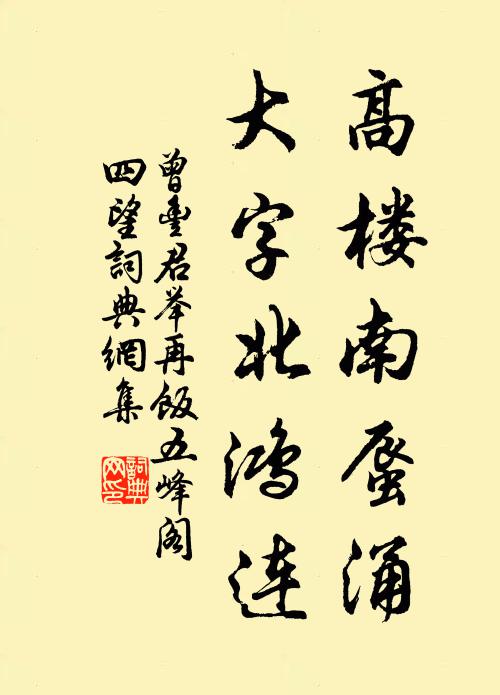 高楼南蜃涌
大字北鸿连
曾豊君举再饭五峰阁
四望詞典網集
詞典
网印